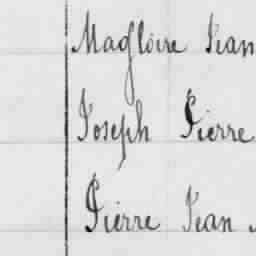 Magloire Jean
Joseph Pierre
Pierre Jean